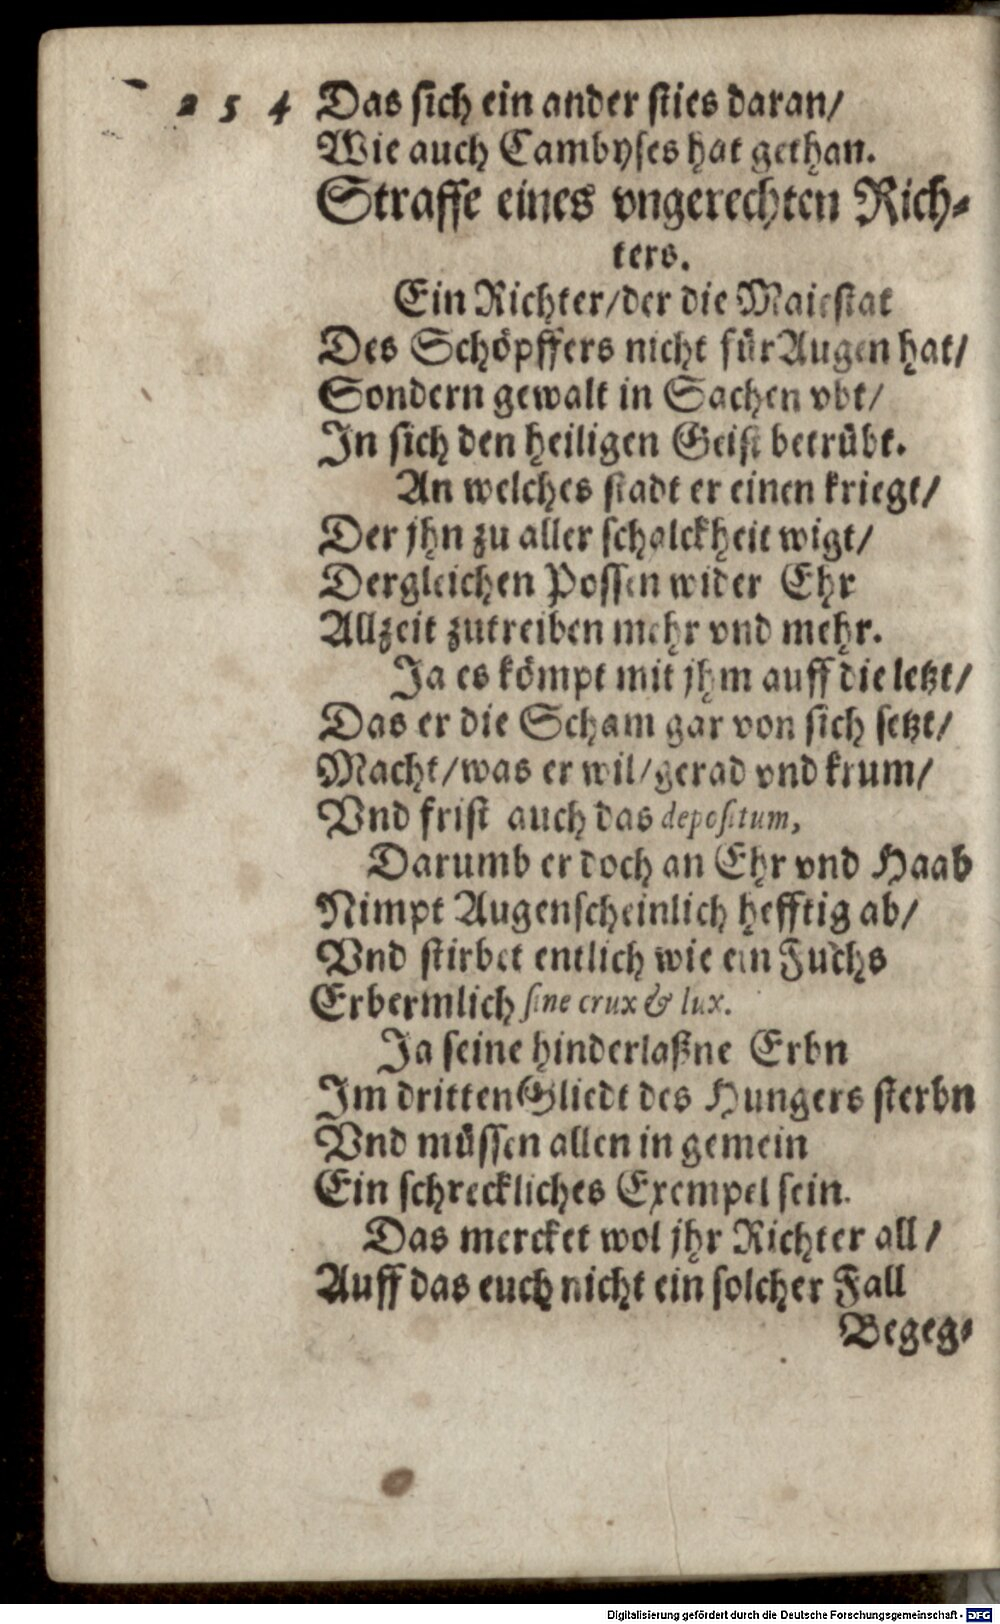 254 Das sich ein ander sties daran/
Wie auch Cambyses hat gethan.
Straffe eines vngerechten Rich-
ters.
Ein Richter/der die Maiestat
Des Schöpffers nicht für Augen hat/
Sondern gewalt in Sachen vbt/
In sich den heiligen Geist betrübt.
An welches stadt er einen kriegt/
Der jhn zu aller schalckheit wigt/
Dergleichen Possen wider Ehr
Allzeit zutreiben mehr vnd mehr.
Ja es kömpt mit jhm auff die letzt/
Das er die Scham gar von sich setzt/
Macht/was er wil/gerad vnd krum/
Vnd frist auch das depositum,
Darumb er doch an Ehr vnd Haab
Nimpt Augenscheinlich hefftig ab/
Vnd stirbet entlich wie ein Fuchs
Erbermlich sine crux & lux.
Ja seine hinderlaßne Erbn
Im dritten Gliedt des Hungers sterbn
Vnd müssen allen in gemein
Ein schreckliches Exempel sein.
Das mercket wol jhr Richter all/
Auff das euch nicht ein solcher Fall
Begeg-
Digitalisierung gefördert durch die Deutsche Forschungsgemeinschaft - DFG